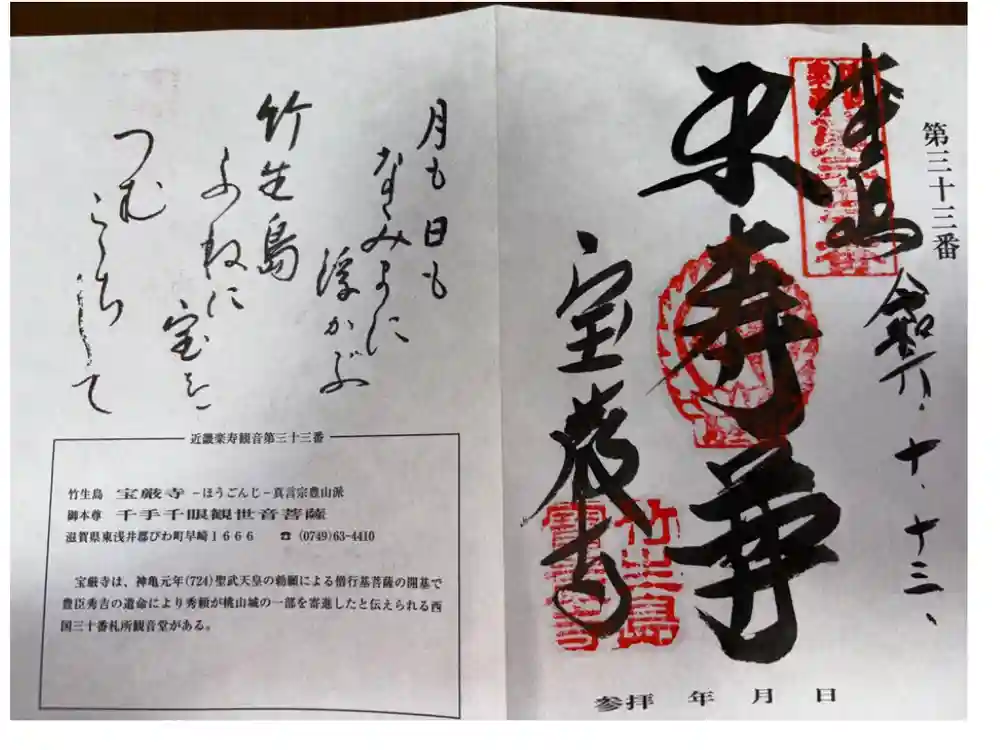 第三十三番
奉拝
令和六、十、十三、
楽寿尊
宝厳寺
竹生島
寳厳寺
参拝 年 月 日
月も日も
なみまに
浮かぶ
竹生島
ふねに
宝を
つむ
こゝち
して
近畿楽寿観音第三十三番
竹生島 宝厳寺 －ほうごんじ－真言宗豊山派
御本尊 千手千眼観世音菩薩
滋賀県東浅井郡びわ町早崎１６６６ ☎ (0749)63-4410
宝厳寺は、神亀元年(724)聖武天皇の勅願による僧行基菩薩の開基で
豊臣秀吉の遺命により秀頼が桃山城の一部を寄進したと伝えられる西
国三十番札所観音堂がある。